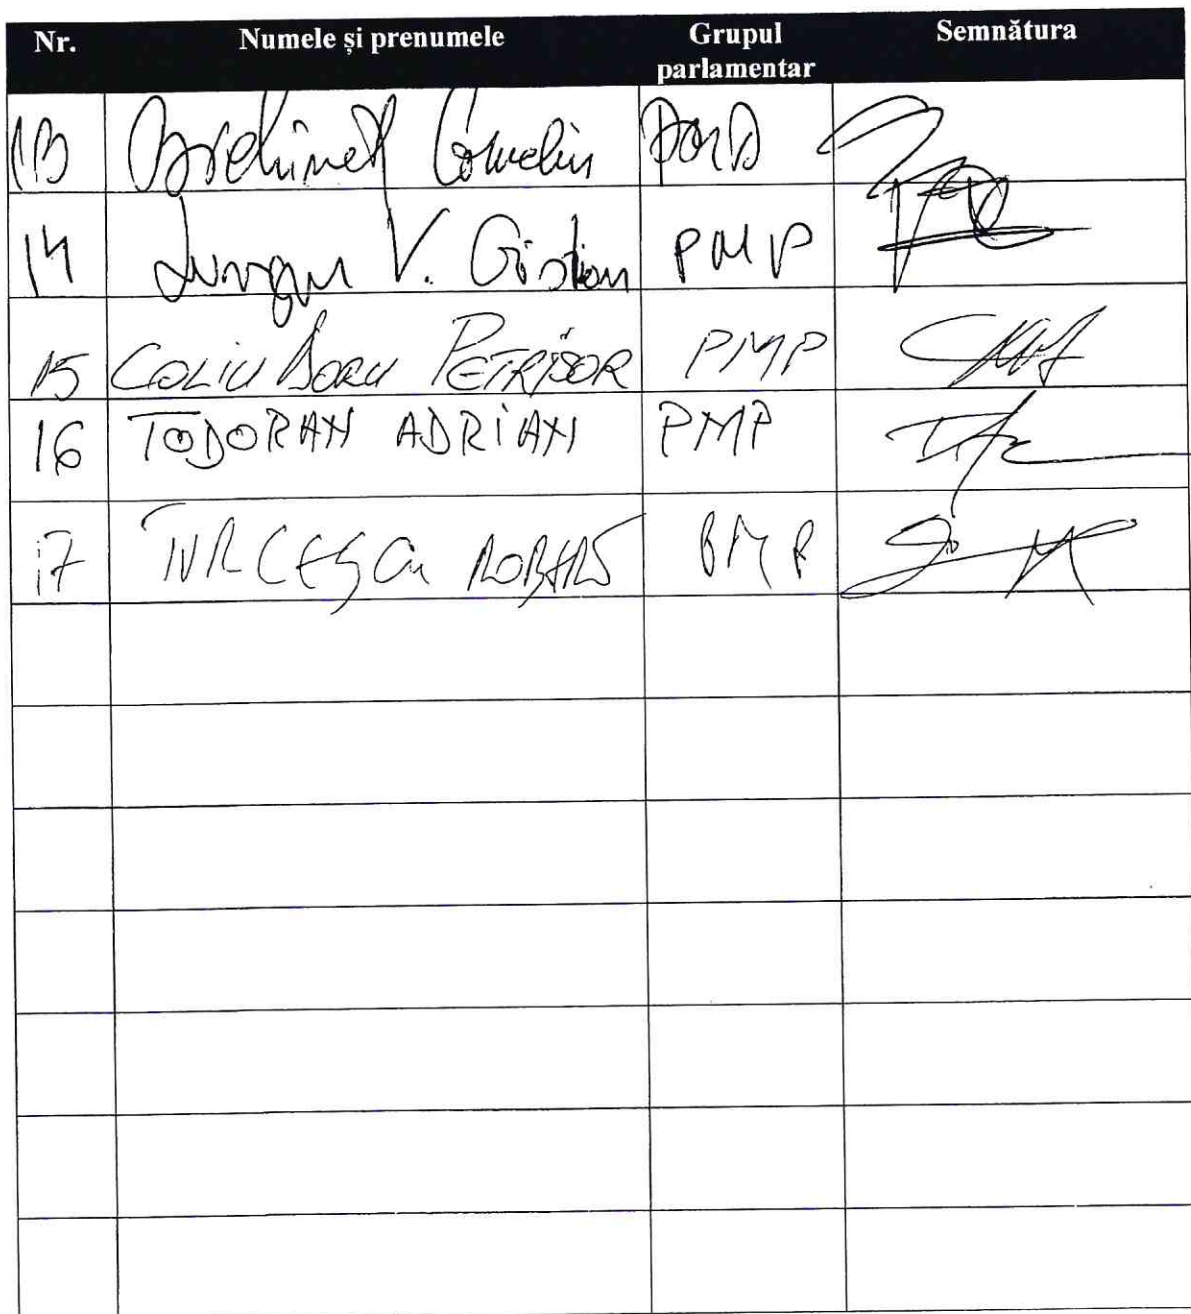 Nr. Numele și prenumele Grupul parlamentar Semnătura
13 Cornelin
14 Lungu V. Cristian PMP
15 COLIU DORU PETRIȘOR PMP
16 TODORAN ADRIAN PMP
17 TURCESCU ROBERT PMP